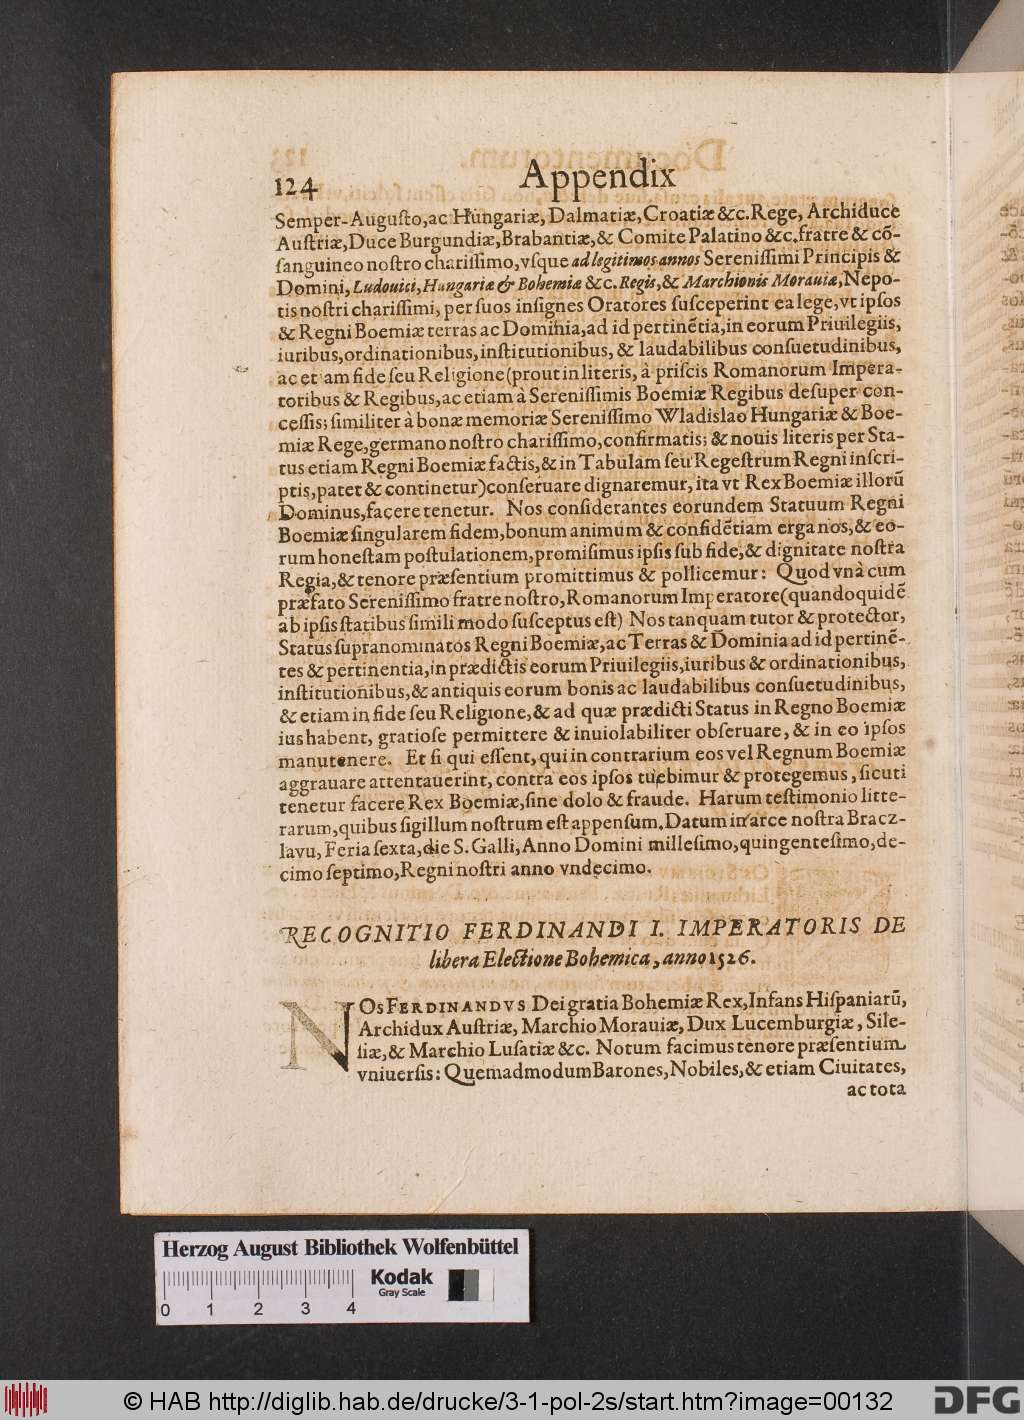 124
Appendix
Semper-Augusto, ac Hungariæ, Dalmatiæ, Croatiæ &c. Rege, Archiduce
Auſtriæ, Duce Burgundiæ, Brabantiæ, & Comite Palatino &c. fratre & cõ-
ſanguineo noſtro chariſſimo, vſque ad legitimos annos Sereniſſimi Principis &
Domini, Ludouici, Hungariæ & Bohemiæ &c. Regis, & Marchionis Morauiæ, Nepo-
tis noſtri chariſſimi, per ſuos inſignes Oratores ſuſceperint ea lege, vt ipſos
& Regni Boemiæ terras ac Dominia, ad id pertinẽtia, in eorum Priuilegiis,
iuribus, ordinationibus, inſtitutionibus, & laudabilibus conſuetudinibus,
ac et am fide ſeu Religione (prout in literis, à priſcis Romanorum Impera-
toribus & Regibus, ac etiam à Sereniſſimis Boemiæ Regibus deſuper con-
ceſſis; ſimiliter à bonæ memoriæ Sereniſſimo Wladislao Hungariæ & Boe-
miæ Rege, germano noſtro chariſſimo, confirmatis; & nouis literis per Sta-
tus etiam Regni Boemiæ factis, & in Tabulam ſeu Regeſtrum Regni inſcri-
ptis, patet & continetur) conſeruare dignaremur, ita vt Rex Boemiæ illorũ
Dominus, facere tenetur. Nos conſiderantes eorundem Statuum Regni
Boemiæ ſingularem fidem, bonum animum & confidẽtiam erga nos, & eo-
rum honeſtam poſtulationem, promiſimus ipſis ſub fide, & dignitate noſtra
Regia, & tenore præſentium promittimus & pollicemur: Quod vnà cum
præfato Sereniſſimo fratre noſtro, Romanorum Imperatore (quandoquidẽ
ab ipſis ſtatibus ſimili modo ſuſceptus eſt) Nos tanquam tutor & protector,
Status ſupranominatos Regni Boemiæ, ac Terras & Dominia ad id pertinẽ-
tes & pertinentia, in prædictis eorum Priuilegiis, iuribus & ordinationibus,
inſtitutionibus, & antiquis eorum bonis ac laudabilibus conſuetudinibus,
& etiam in fide ſeu Religione, & ad quæ prædicti Status in Regno Boemiæ
ius habent, gratioſe permittere & inuiolabiliter obſeruare, & in eo ipſos
manutenere. Et ſi qui eſſent, qui in contrarium eos vel Regnum Boemiæ
aggrauare attentauerint, contra eos ipſos tuebimur & protegemus, ſicuti
tenetur facere Rex Boemiæ, ſine dolo & fraude. Harum teſtimonio litte-
rarum, quibus ſigillum noſtrum eſt appenſum. Datum in arce noſtra Bracz-
lavu, Feria ſexta, die S. Galli, Anno Domini milleſimo, quingenteſimo, de-
cimo ſeptimo, Regni noſtri anno vndecimo.
RECOGNITIO FERDINANDI I. IMPERATORIS DE
libera Electione Bohemica, anno 1526.
NOS FERDINANDVS Dei gratia Bohemiæ Rex, Infans Hiſpaniarũ,
Archidux Auſtriæ, Marchio Morauiæ, Dux Lucemburgiæ, Sile-
ſiæ, & Marchio Luſatiæ &c. Notum facimus tenore præſentium
vniuerſis: Quemadmodum Barones, Nobiles, & etiam Ciuitates,
ac tota
Herzog August Bibliothek Wolfenbüttel
Kodak
Gray Scale
0 1 2 3 4
© HAB http://diglib.hab.de/drucke/3-1-pol-2s/start.htm?image=00132
DFG